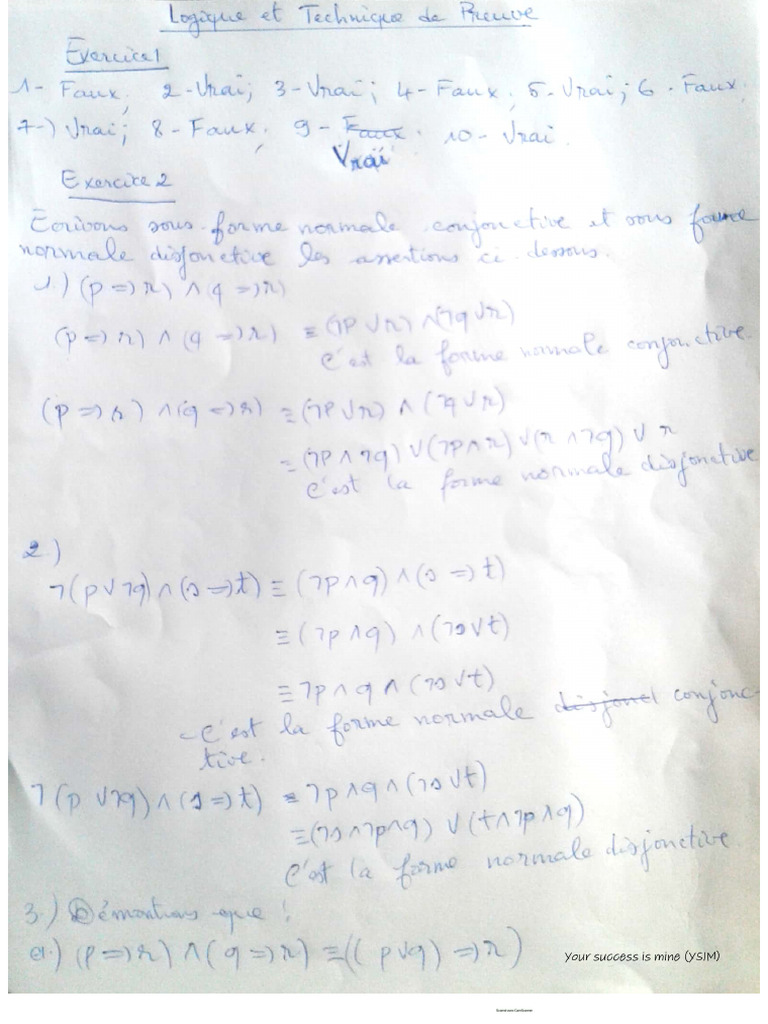 Logique et Technique de Preuve
Exercice 1
1- Faux; 2-Vrai; 3-Vrai; 4-Faux; 5-Vrai; 6-Faux;
7-) Vrai; 8-Faux; 9-Faux. 10-Vrai.
Vrai
Exercice 2
Écrivons sous forme normale conjonctive et sous forme
normale disjonctive les assertions ci-dessous.
1.) (p => r) ∧ (q => r)
(p => r) ∧ (q => r) ≡ (¬p ∨ r) ∧ (¬q ∨ r)
C'est la forme normale conjonctive.
(p => r) ∧ (q => r) ≡ (¬p ∨ r) ∧ (¬q ∨ r)
≡ (¬p ∧ ¬q) ∨ (¬p ∧ r) ∨ (r ∧ ¬q) ∨ r
C'est la forme normale disjonctive
2.)
¬(p ∨ ¬q) ∧ (s => t) ≡ (¬p ∧ q) ∧ (s => t)
≡ (¬p ∧ q) ∧ (¬s ∨ t)
≡ ¬p ∧ q ∧ (¬s ∨ t)
- C'est la forme normale disjonct conjonc-
tive.
¬(p ∨ ¬q) ∧ (s => t) ≡ ¬p ∧ q ∧ (¬s ∨ t)
≡ (¬s ∧ ¬p ∧ q) ∨ (t ∧ ¬p ∧ q)
C'est la forme normale disjonctive.
3.) Démontrons que:
a.) (p => r) ∧ (q => r) ≡ ((p ∨ q) => r)
Your success is mine (YSIM)